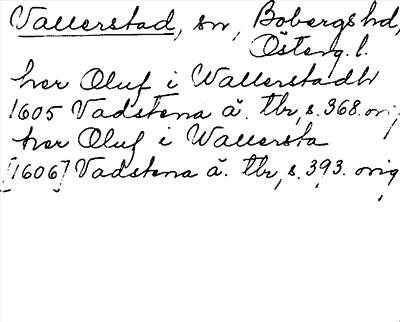 Vallerstad, sn, Bobergs hd,
Österg. l.
her Oluf i Wallerstadh
1605 Vadstena ä. tbr, s. 368. orig
her Oluf i Wallersta
[1606] Vadstena ä. tbr, s. 393. orig